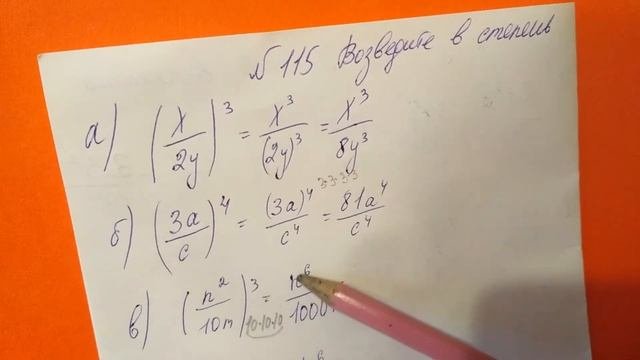 № 115 Возведите в степень
а) (x/2y)³ = x³/(2y)³ = x³/8y³
б) (3a/c)⁴ = (3a)⁴/c⁴ = 3·3·3·3 81a⁴/c⁴
в) (n²/10m)³ = 10·10·10 n⁶/1000